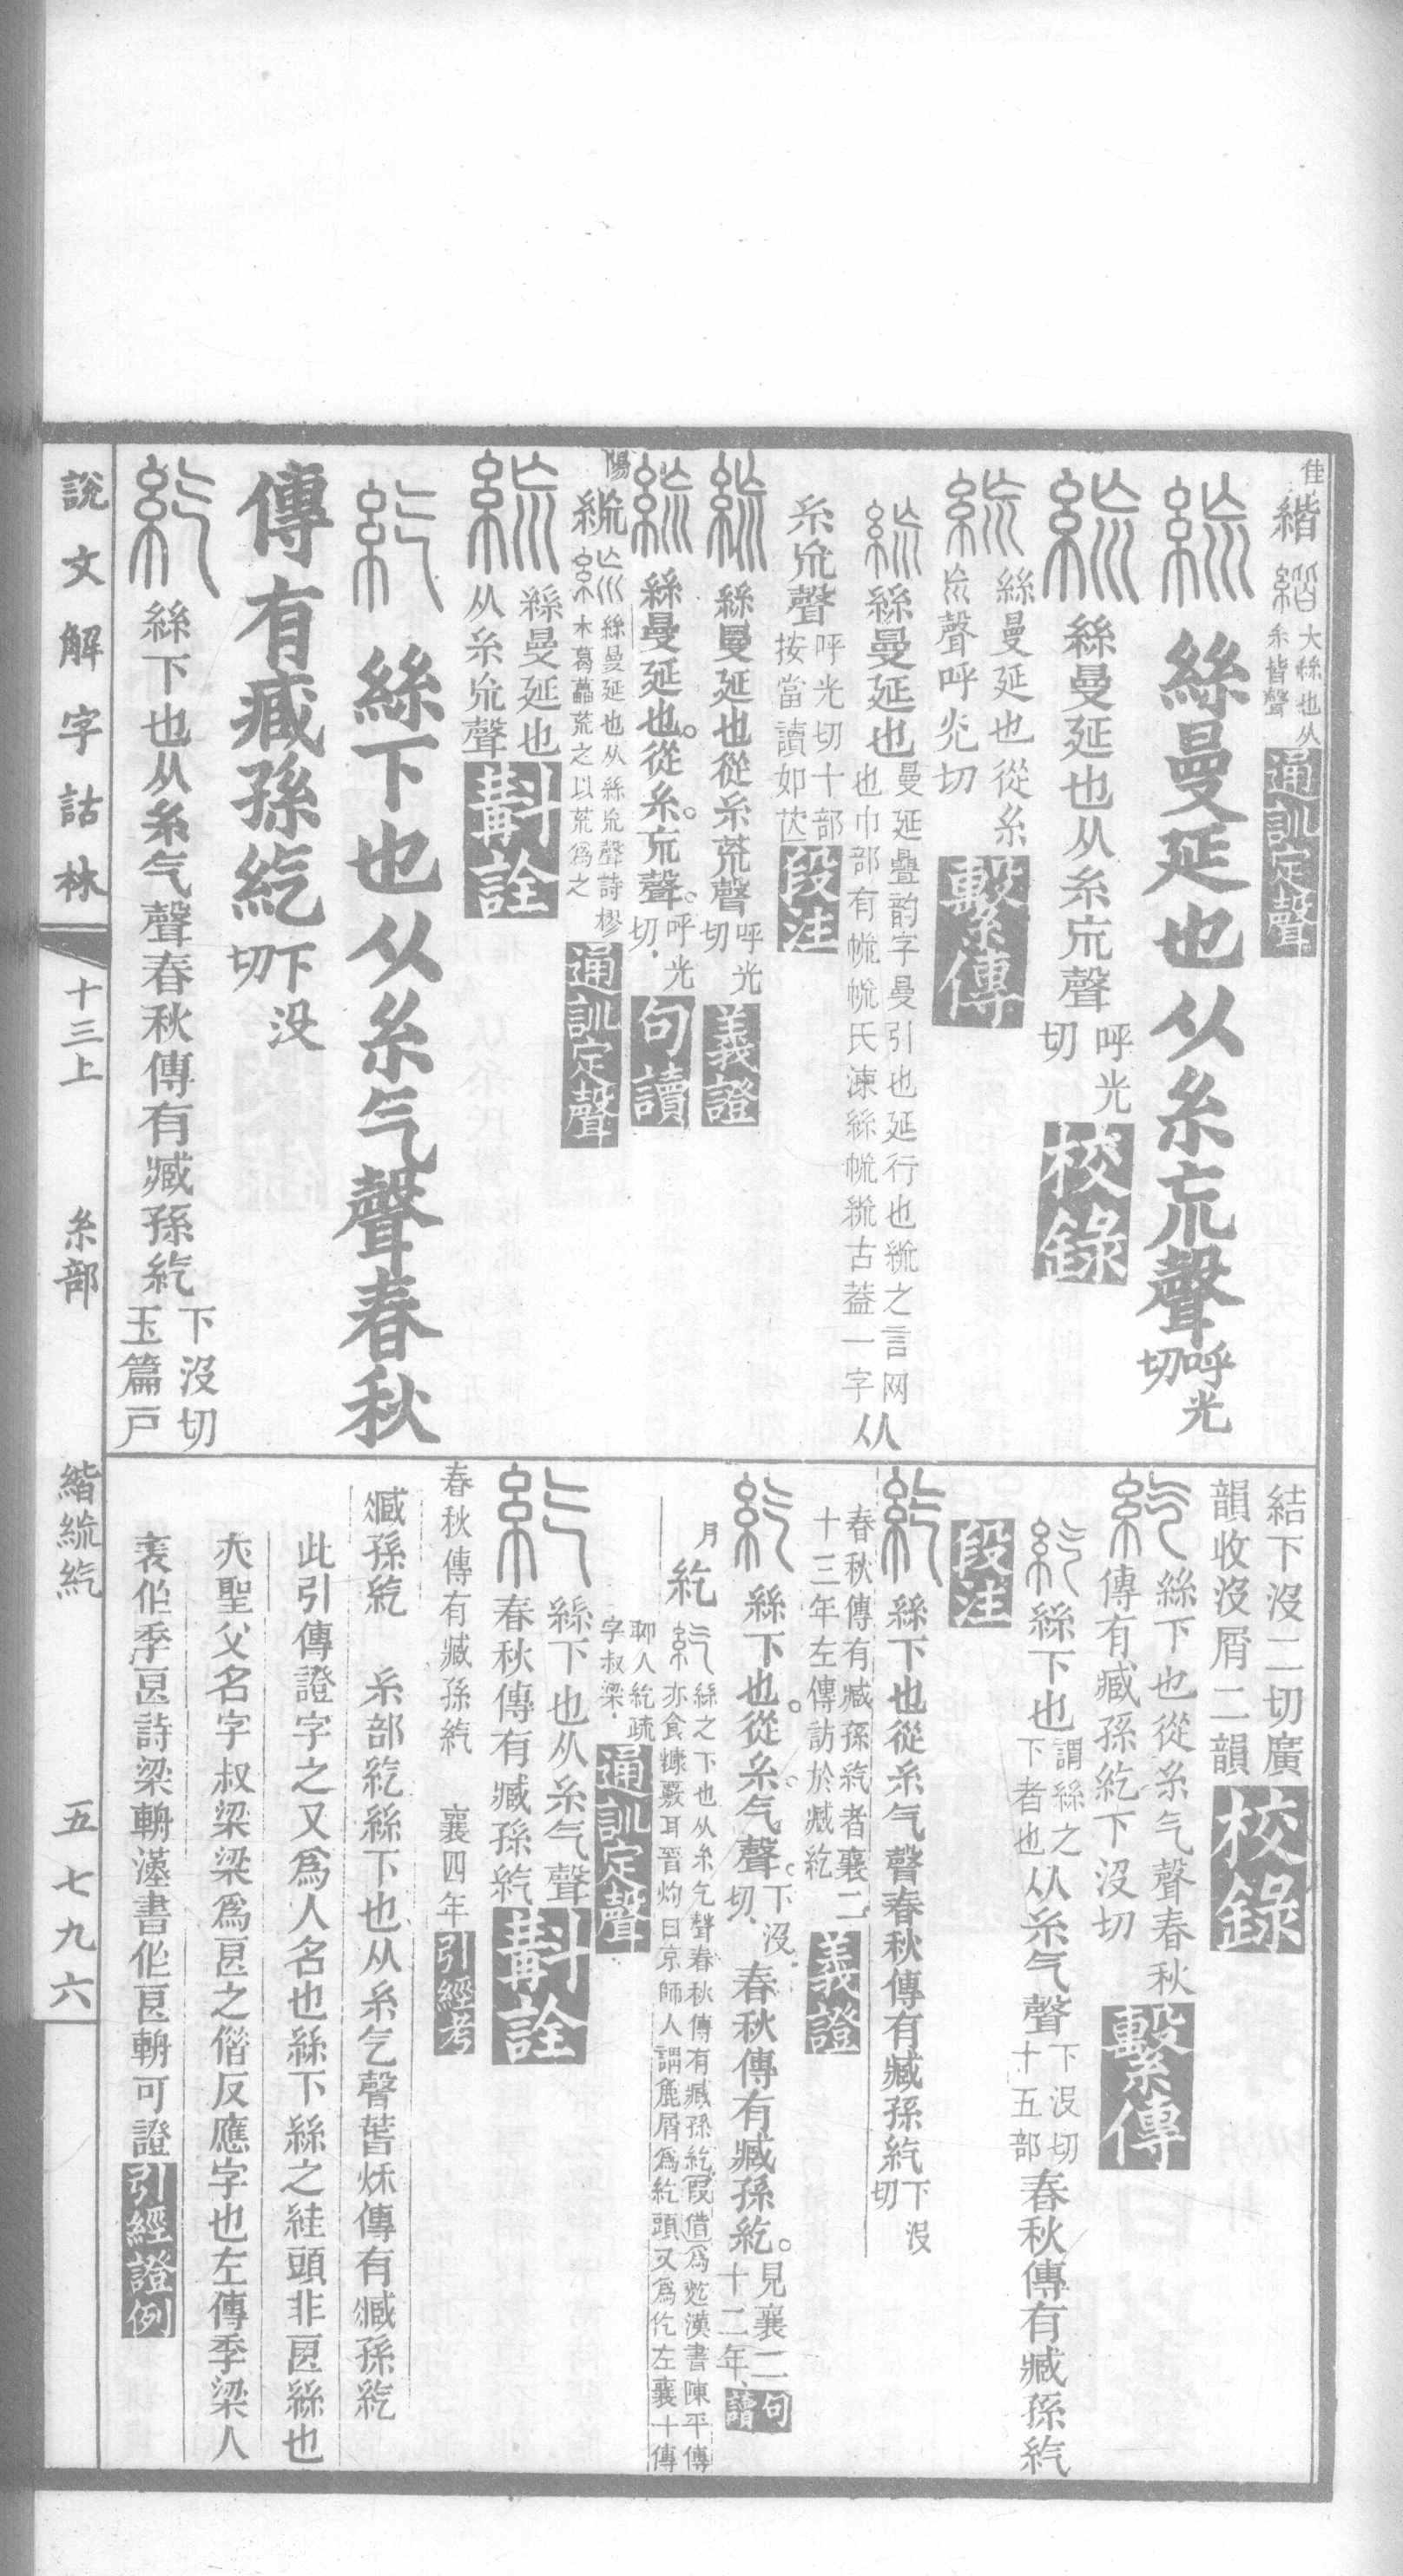 佳
緒 大絲也从糸皆聲 通訓定聲
絲曼延也从糸巟聲 呼光切
絲曼延也从糸巟聲 呼光切 校錄
絲曼延也從糸巟聲呼光切 繫傳
絲曼延也 曼延疊韵字曼引也延行也統之言网也巾部有㡆㡆氏湅絲㡆統古葢一字 从
糸巟聲 呼光切十部按當讀如茫 段注
絲曼延也從糸巟聲 呼光切 義證
絲曼延也。從糸。巟聲。呼光切. 句讀
陽
統 絲曼延也从絲巟聲詩樛木葛藟荒之以荒爲之 通訓定聲
絲曼延也从糸巟聲 斠詮
絲下也从糸气聲春秋
傳有臧孫紇 下没切
絲下也从糸气聲春秋傳有臧孫紇 下沒切玉篇戸
結下沒二切廣韻收沒屑二韻 校錄
絲下也從糸气聲春秋傳有臧孫紇下沒切 繫傳
絲下也 謂絲之下者也 从糸气聲 下沒切十五部 春秋傳有臧孫紇
段注
絲下也從糸气聲春秋傳有臧孫紇 下沒切
春秋傳有臧孫紇者襄二十三年左傳訪於臧紇 義證
絲下也。從糸。气聲。下沒切. 春秋傳有臧孫紇。見襄二十二年. 句讀
月
紇 絲之下也从糸气聲春秋傳有臧孫紇假借爲麧漢書陳平傳亦食糠覈耳晉灼曰京師人謂麄屑爲紇頭又爲仡左襄十傳
郰人紇疏字叔梁. 通訓定聲
絲下也从糸气聲春秋傳有臧孫紇 斠詮
春秋傳有臧孫紇 襄四年 引經考
臧孫紇 糸部紇絲下也从糸乞聲萅秌傳有臧孫紇
此引傳證字之又爲人名也絲下絲之絓頭非㠯絲也
大聖父名字叔梁梁爲㠯之偕反應字也左傳季梁人
表作季㠯詩梁輈漢書作㠯輈可證 引經證例
說文解字詁林 十三上 糸部 緒統紇 五七九六